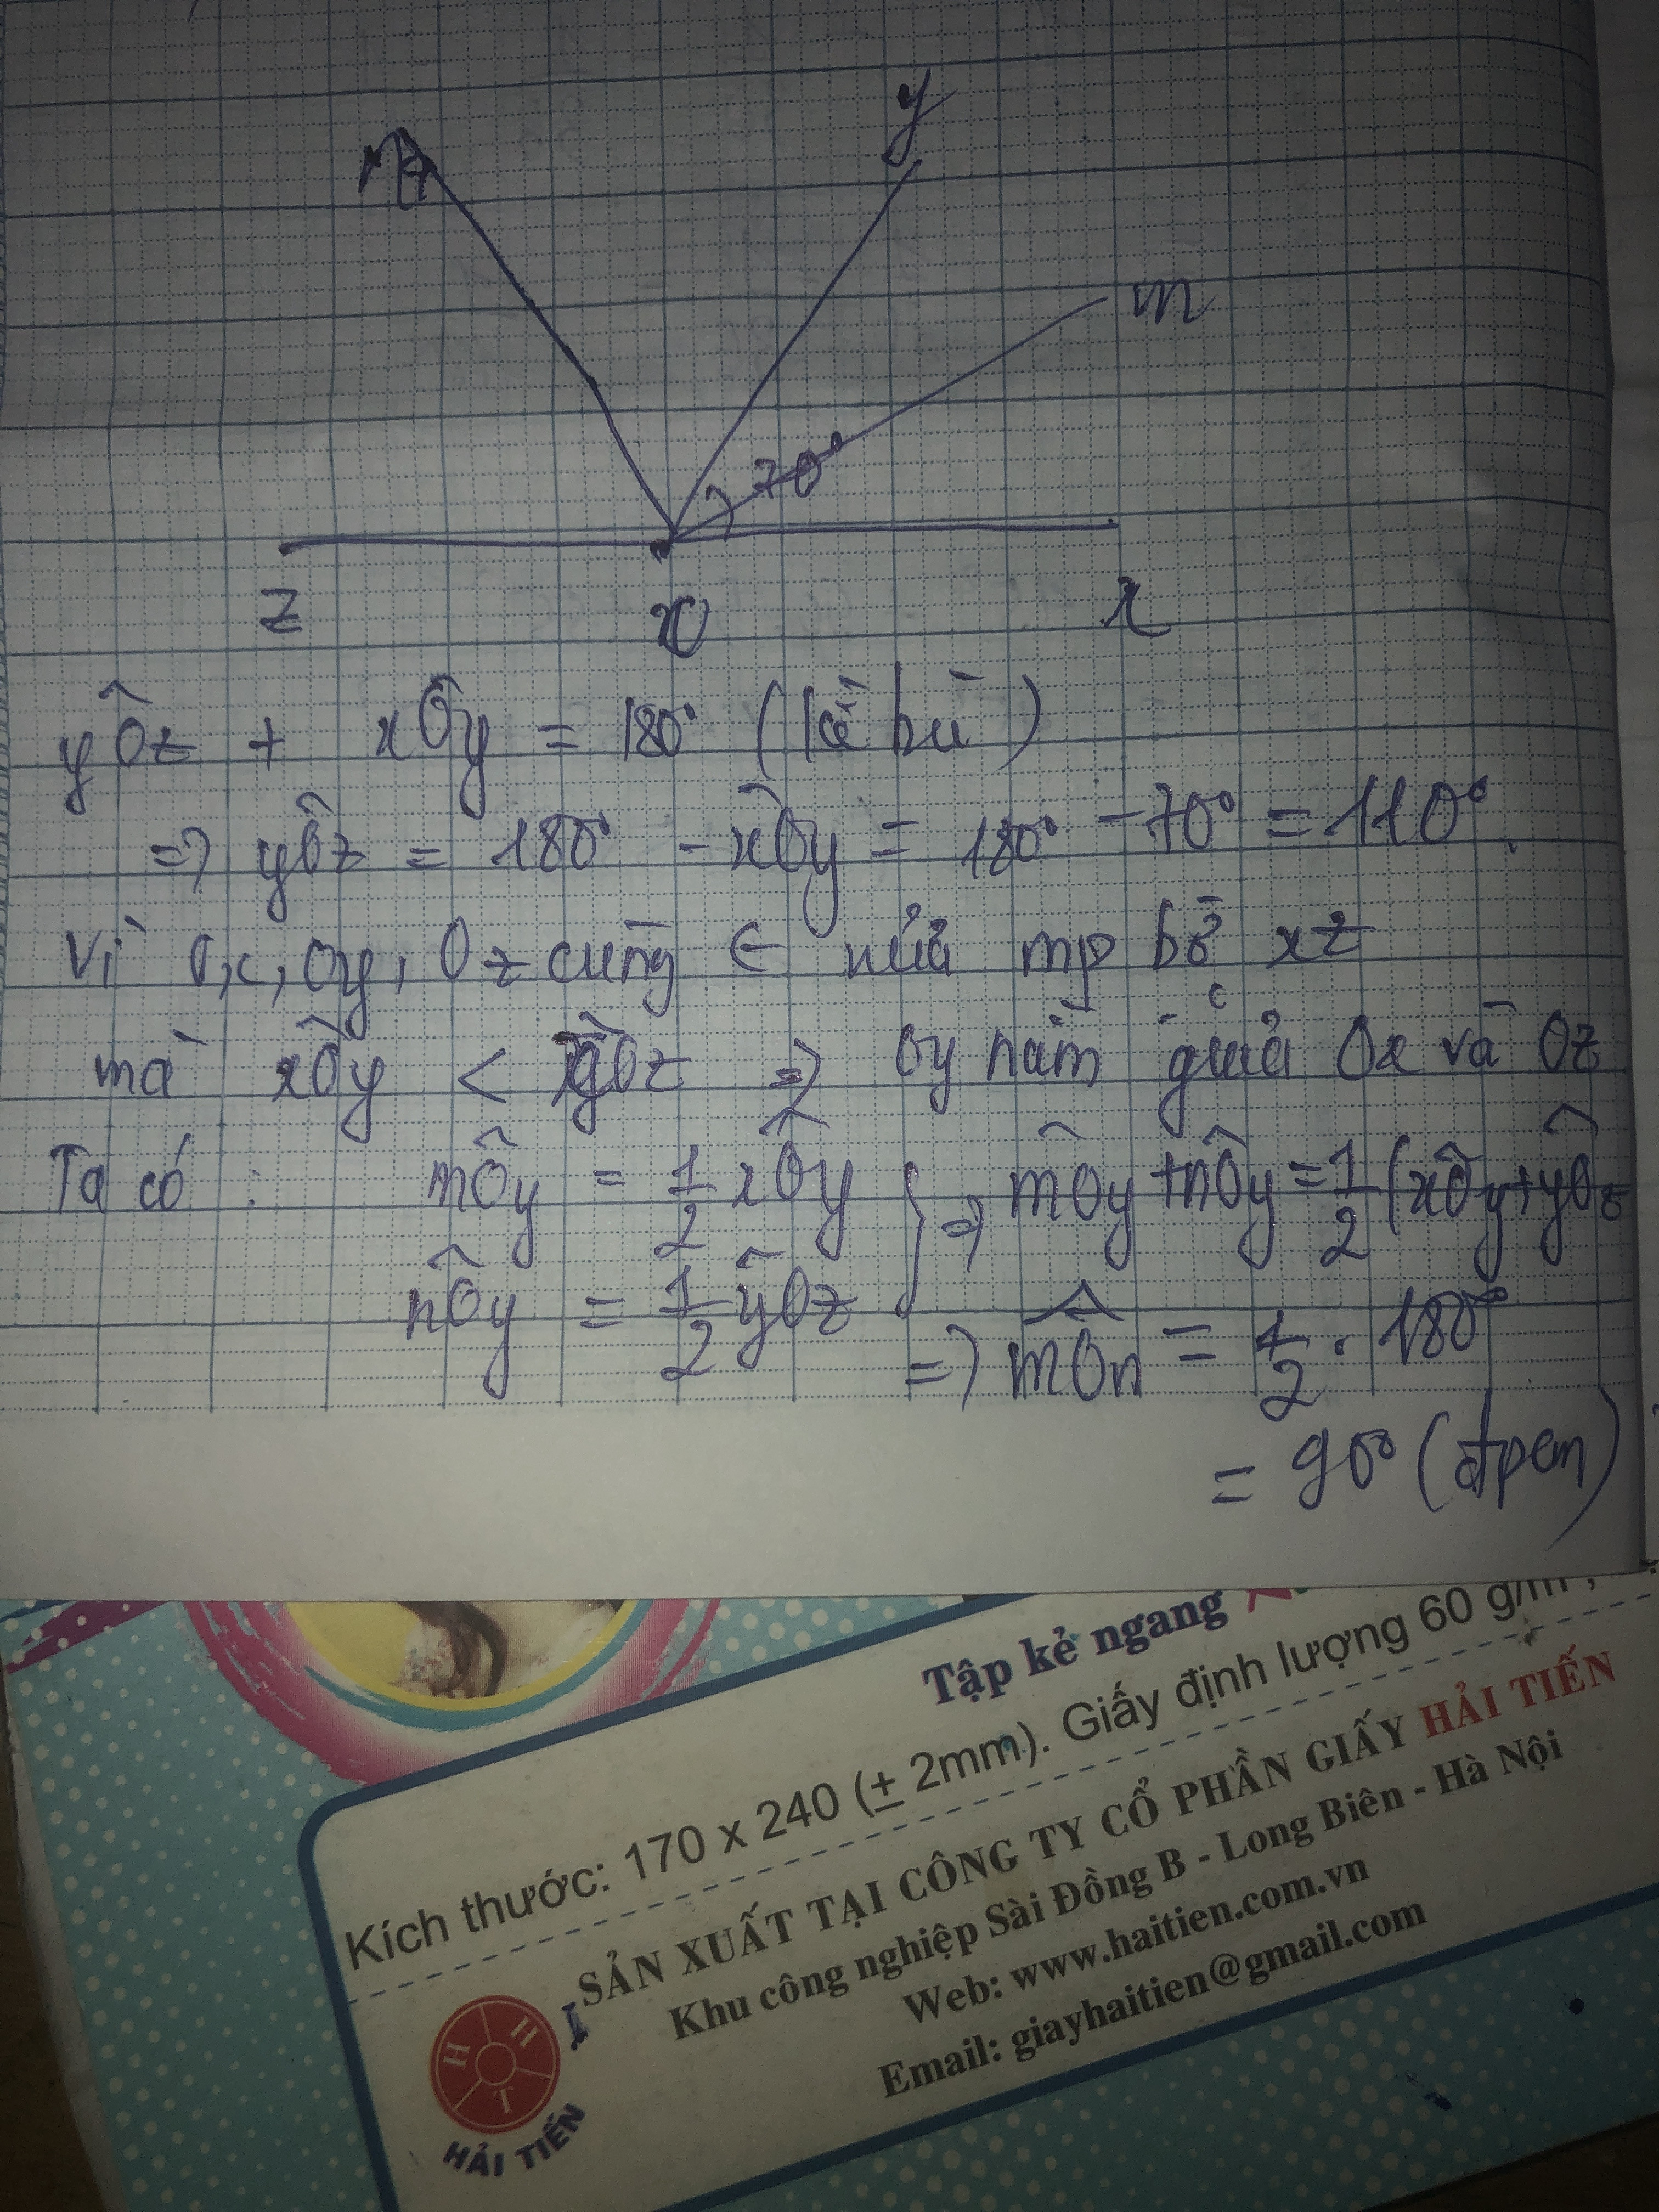 y
m
70°
z
O
x
yÔz + xÔy = 180° (kề bù)
=> yÔz = 180° - xÔy = 180° - 70° = 110°
Vì Ox, Oy, Oz cùng ∈ nửa mp bờ xz
mà xÔy < yÔz => Oy nằm giữa Ox và Oz
Ta có : mÔy = 1/2 xÔy } => mÔy + nÔy = 1/2 (xÔy + yÔz
nÔy = 1/2 yÔz
=> mÔn = 1/2 . 180°
= 90° (đpcm)
Tập kẻ ngang
Kích thước: 170 x 240 (± 2mm). Giấy định lượng 60 g/m²,
SẢN XUẤT TẠI CÔNG TY CỔ PHẦN GIẤY HẢI TIẾN
Khu công nghiệp Sài Đồng B - Long Biên - Hà Nội
Web: www.haitien.com.vn
Email: giayhaitien@gmail.com
H H T
HẢI TIẾN